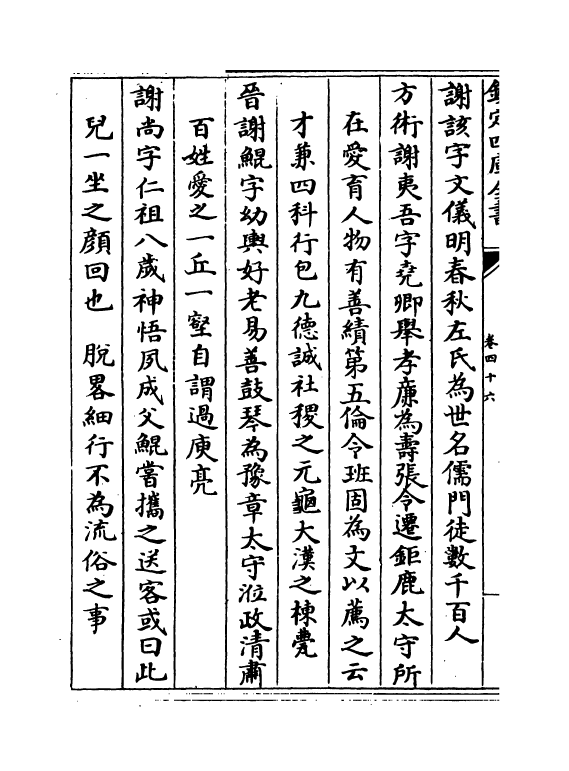 欽定四庫全書
卷四十六
謝該字文儀明春秋左氏為世名儒門徒數千百人
方術謝夷吾字堯卿舉孝廉為壽張令遷鉅鹿太守所
在愛育人物有善績第五倫令班固為文以薦之云
才兼四科行包九德誠社稷之元龜大漢之棟甍
晉謝鯤字幼輿好老易善鼓琴為豫章太守涖政清肅
百姓愛之一丘一壑自謂過庾亮
謝尚字仁祖八歲神悟夙成父鯤嘗攜之送客或曰此
兒一坐之顔回也 脫畧細行不為流俗之事